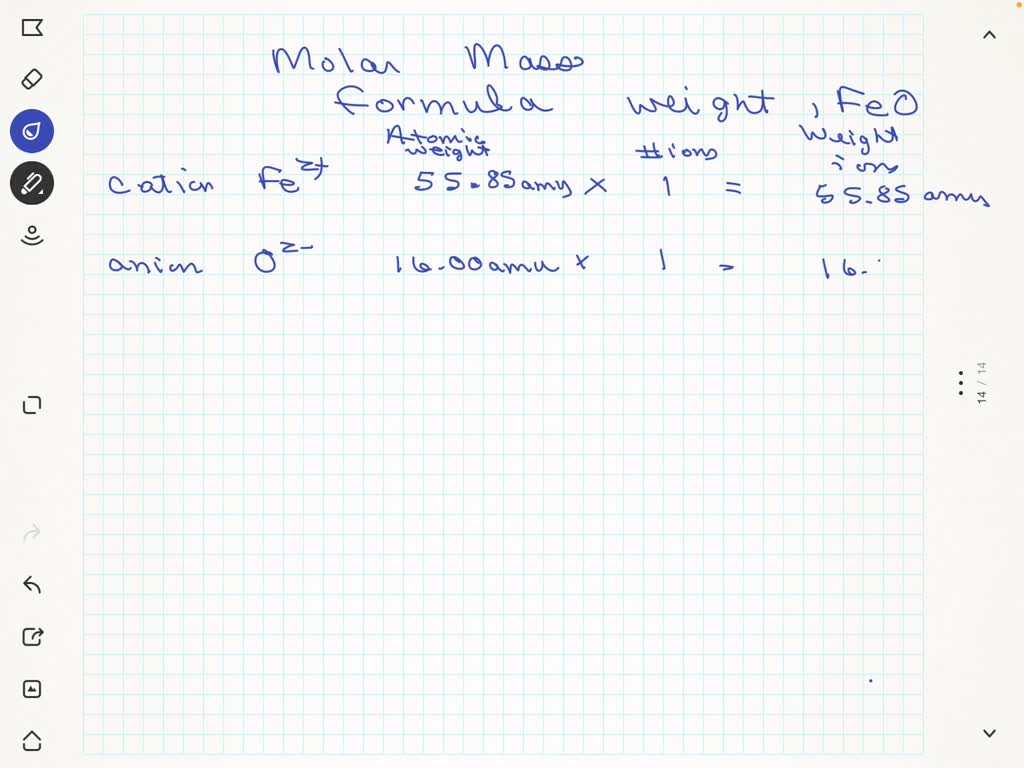 Molar Mass
Formula weight, FeO
Atomic weight #ions Weight ions
cation Fe²⁺ 55.85 amu × 1 = 55.85 amu
anion O²⁻ 16.00 amu × 1 = 16.
14 / 14